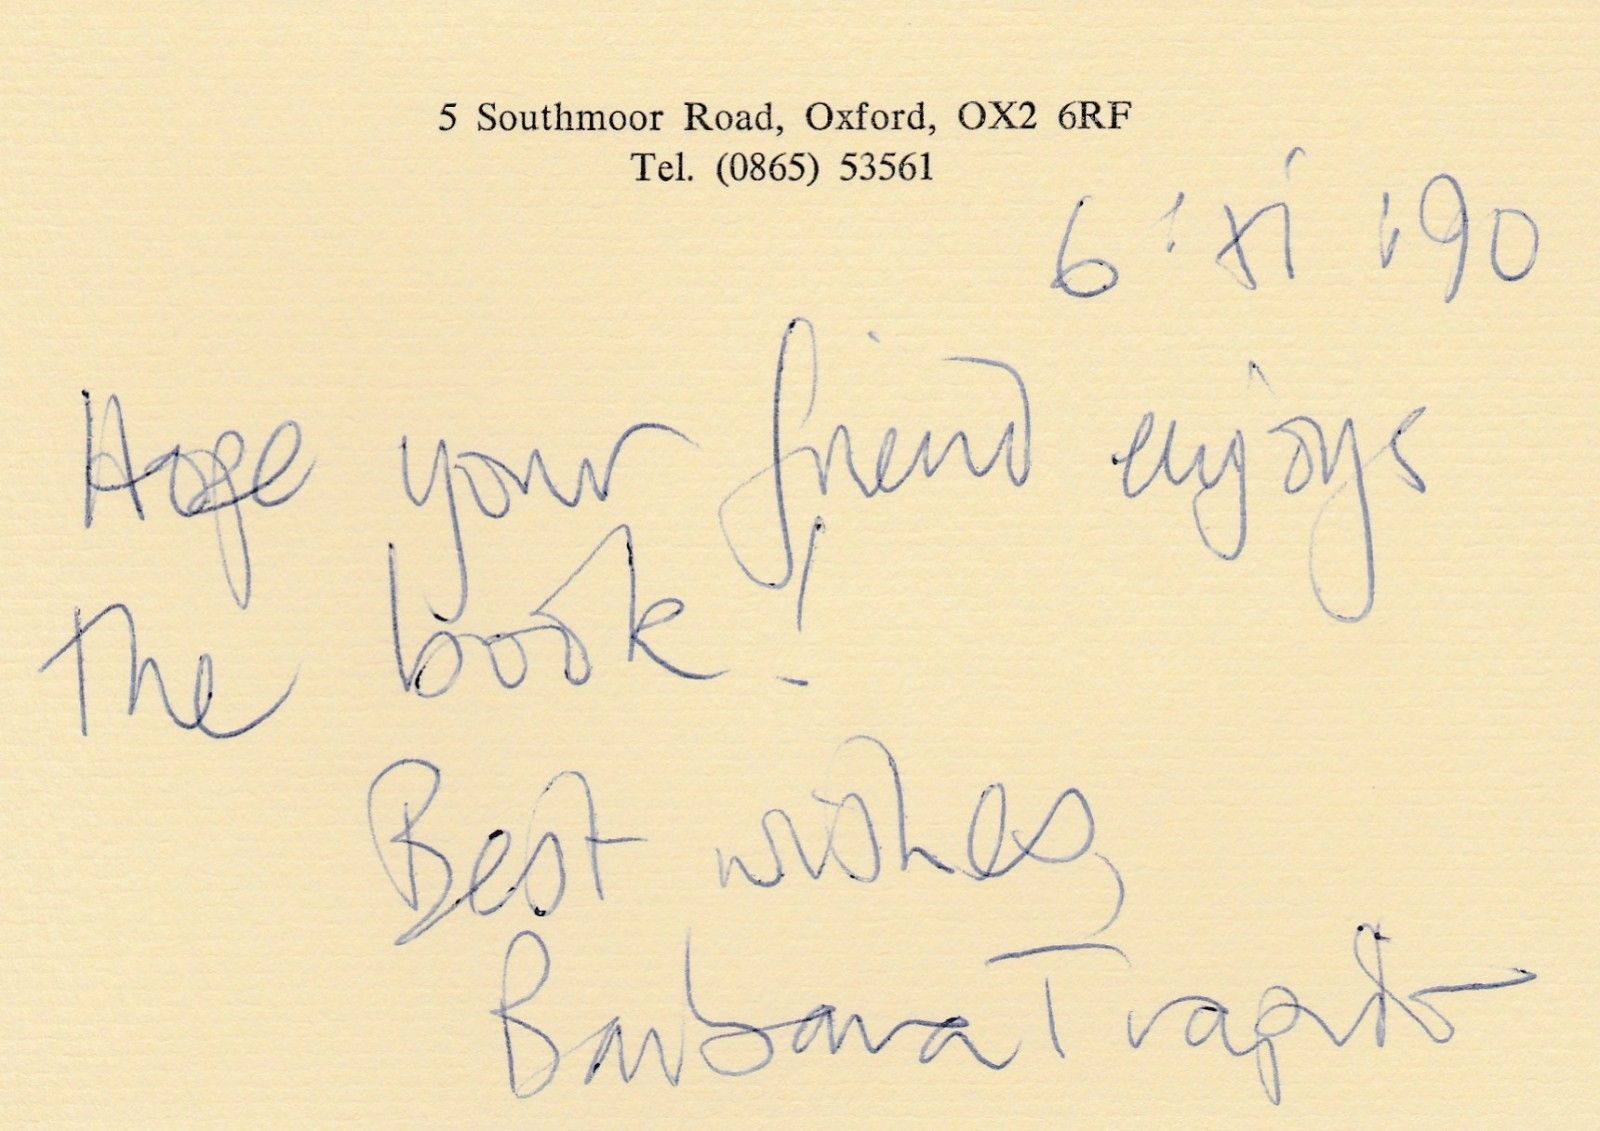 5 Southmoor Road, Oxford, OX2 6RF
Tel. (0865) 53561
6 · xi · 90
Hope your friend enjoys
the book!
Best wishes,
Barbara Trapido